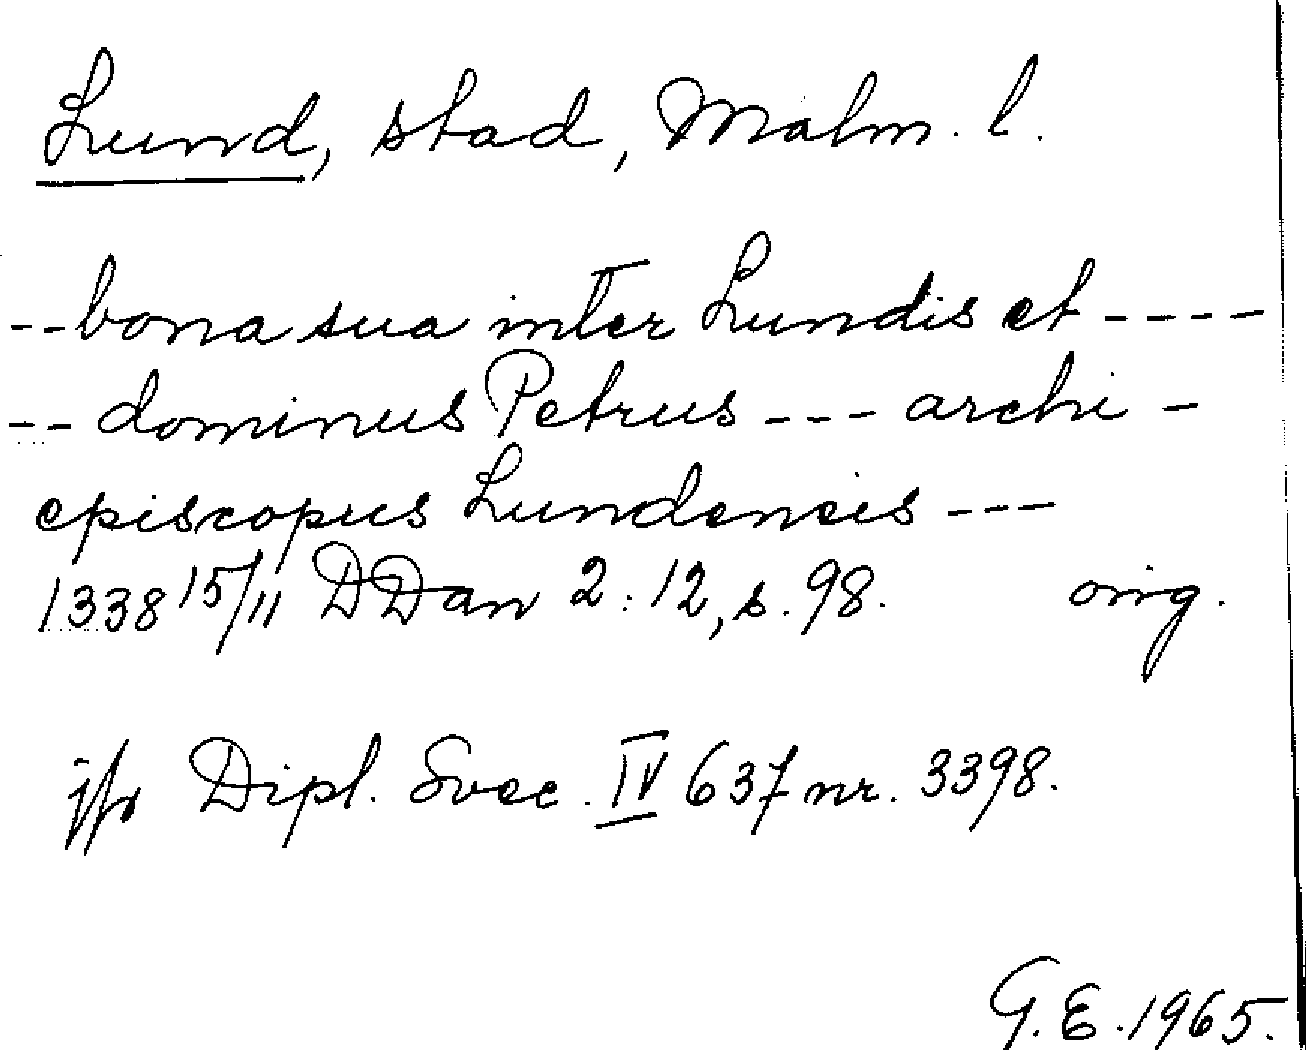 Lund, stad, Malm. l.
-- bona sua inter Lundis et ----
-- dominus Petrus --- archi -
episcopus Lundensis ---
1338 15/11 DDan 2:12, s. 98. orig.
jfr Dipl. Svec. IV 637 nr. 3398.
G.E. 1965.